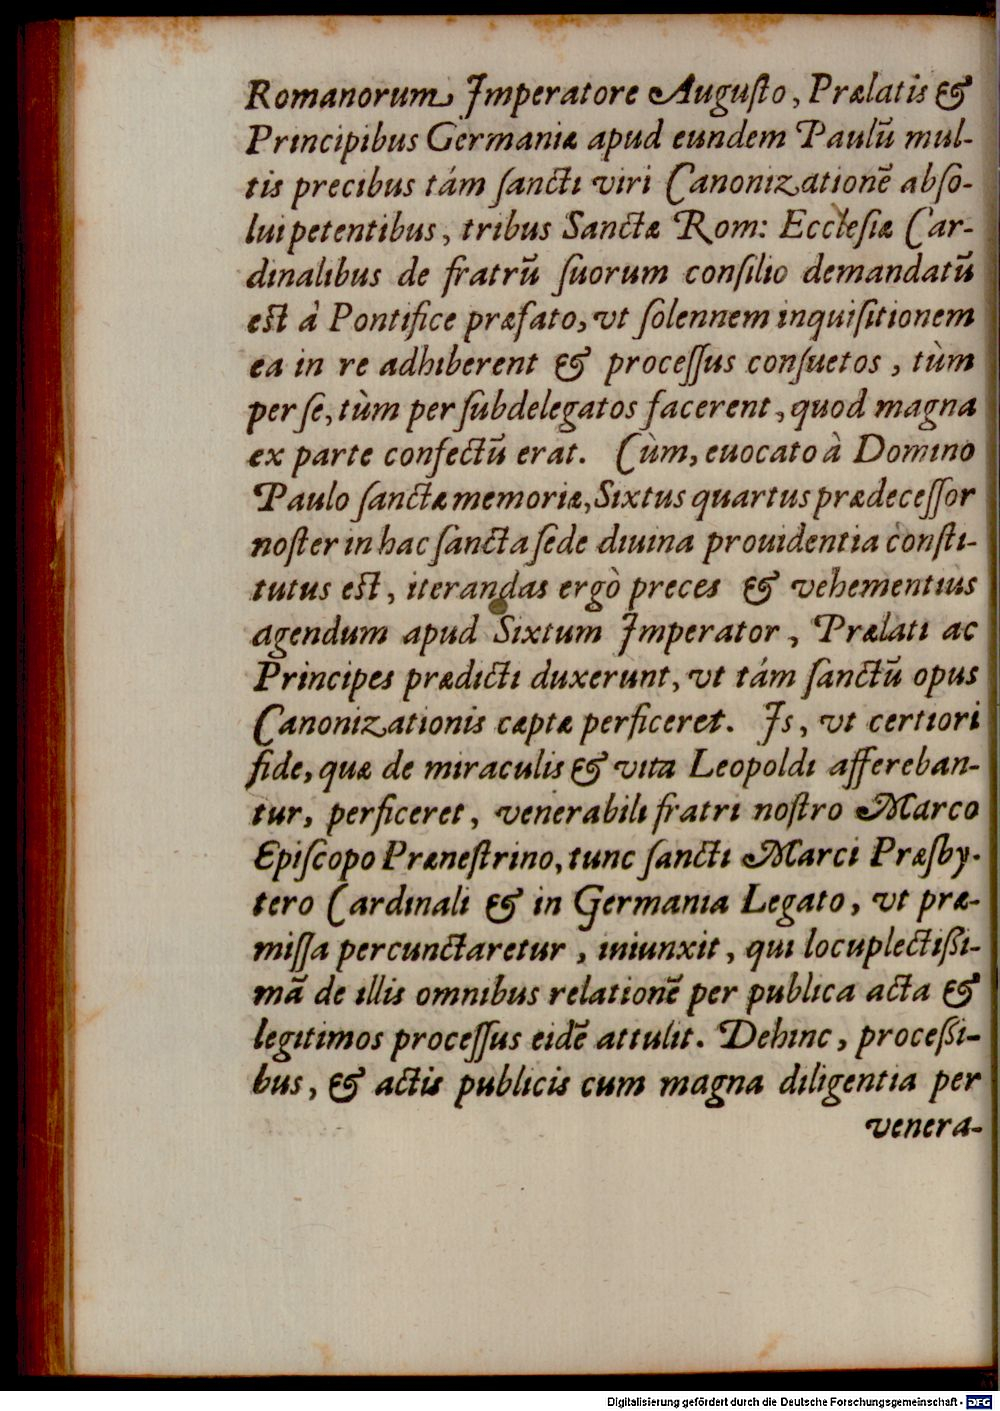 Romanorum Imperatore Auguſto, Prælatis &
Principibus Germaniæ apud eundem Paulū mul-
tis precibus tám ſancti viri Canonizationē abſo-
lui petentibus, tribus Sanctæ Rom: Eccleſiæ Car-
dinalibus de fratrū ſuorum conſilio demandatū
est à Pontifice præfato, vt ſolennem inquiſitionem
ea in re adhiberent & proceſſus conſuetos, tùm
per ſe, tùm per ſubdelegatos facerent, quod magna
ex parte confectū erat. Cùm, euocato à Domino
Paulo ſanctæ memoriæ, Sixtus quartus prædeceſſor
noſter in hac ſancta ſede diuina prouidentia conſti-
tutus est, iterandas ergò preces & vehementius
agendum apud Sixtum Imperator, Prælati ac
Principes prædicti duxerunt, vt tám ſanctū opus
Canonizationis cæptæ perficeret. Is, vt certiori
fide, quæ de miraculis & vita Leopoldi affereban-
tur, perficeret, venerabili fratri noſtro Marco
Epiſcopo Præneſtrino, tunc ſancti Marci Præſby-
tero Cardinali & in Germania Legato, vt præ-
miſſa percunctaretur, iniunxit, qui locuplectißi-
mā de illis omnibus relationē per publica acta &
legitimos proceſſus eidē attulit. Dehinc, proceßi-
bus, & actis publicis cum magna diligentia per
venera-
Digitalisierung gefördert durch die Deutsche Forschungsgemeinschaft - DFG